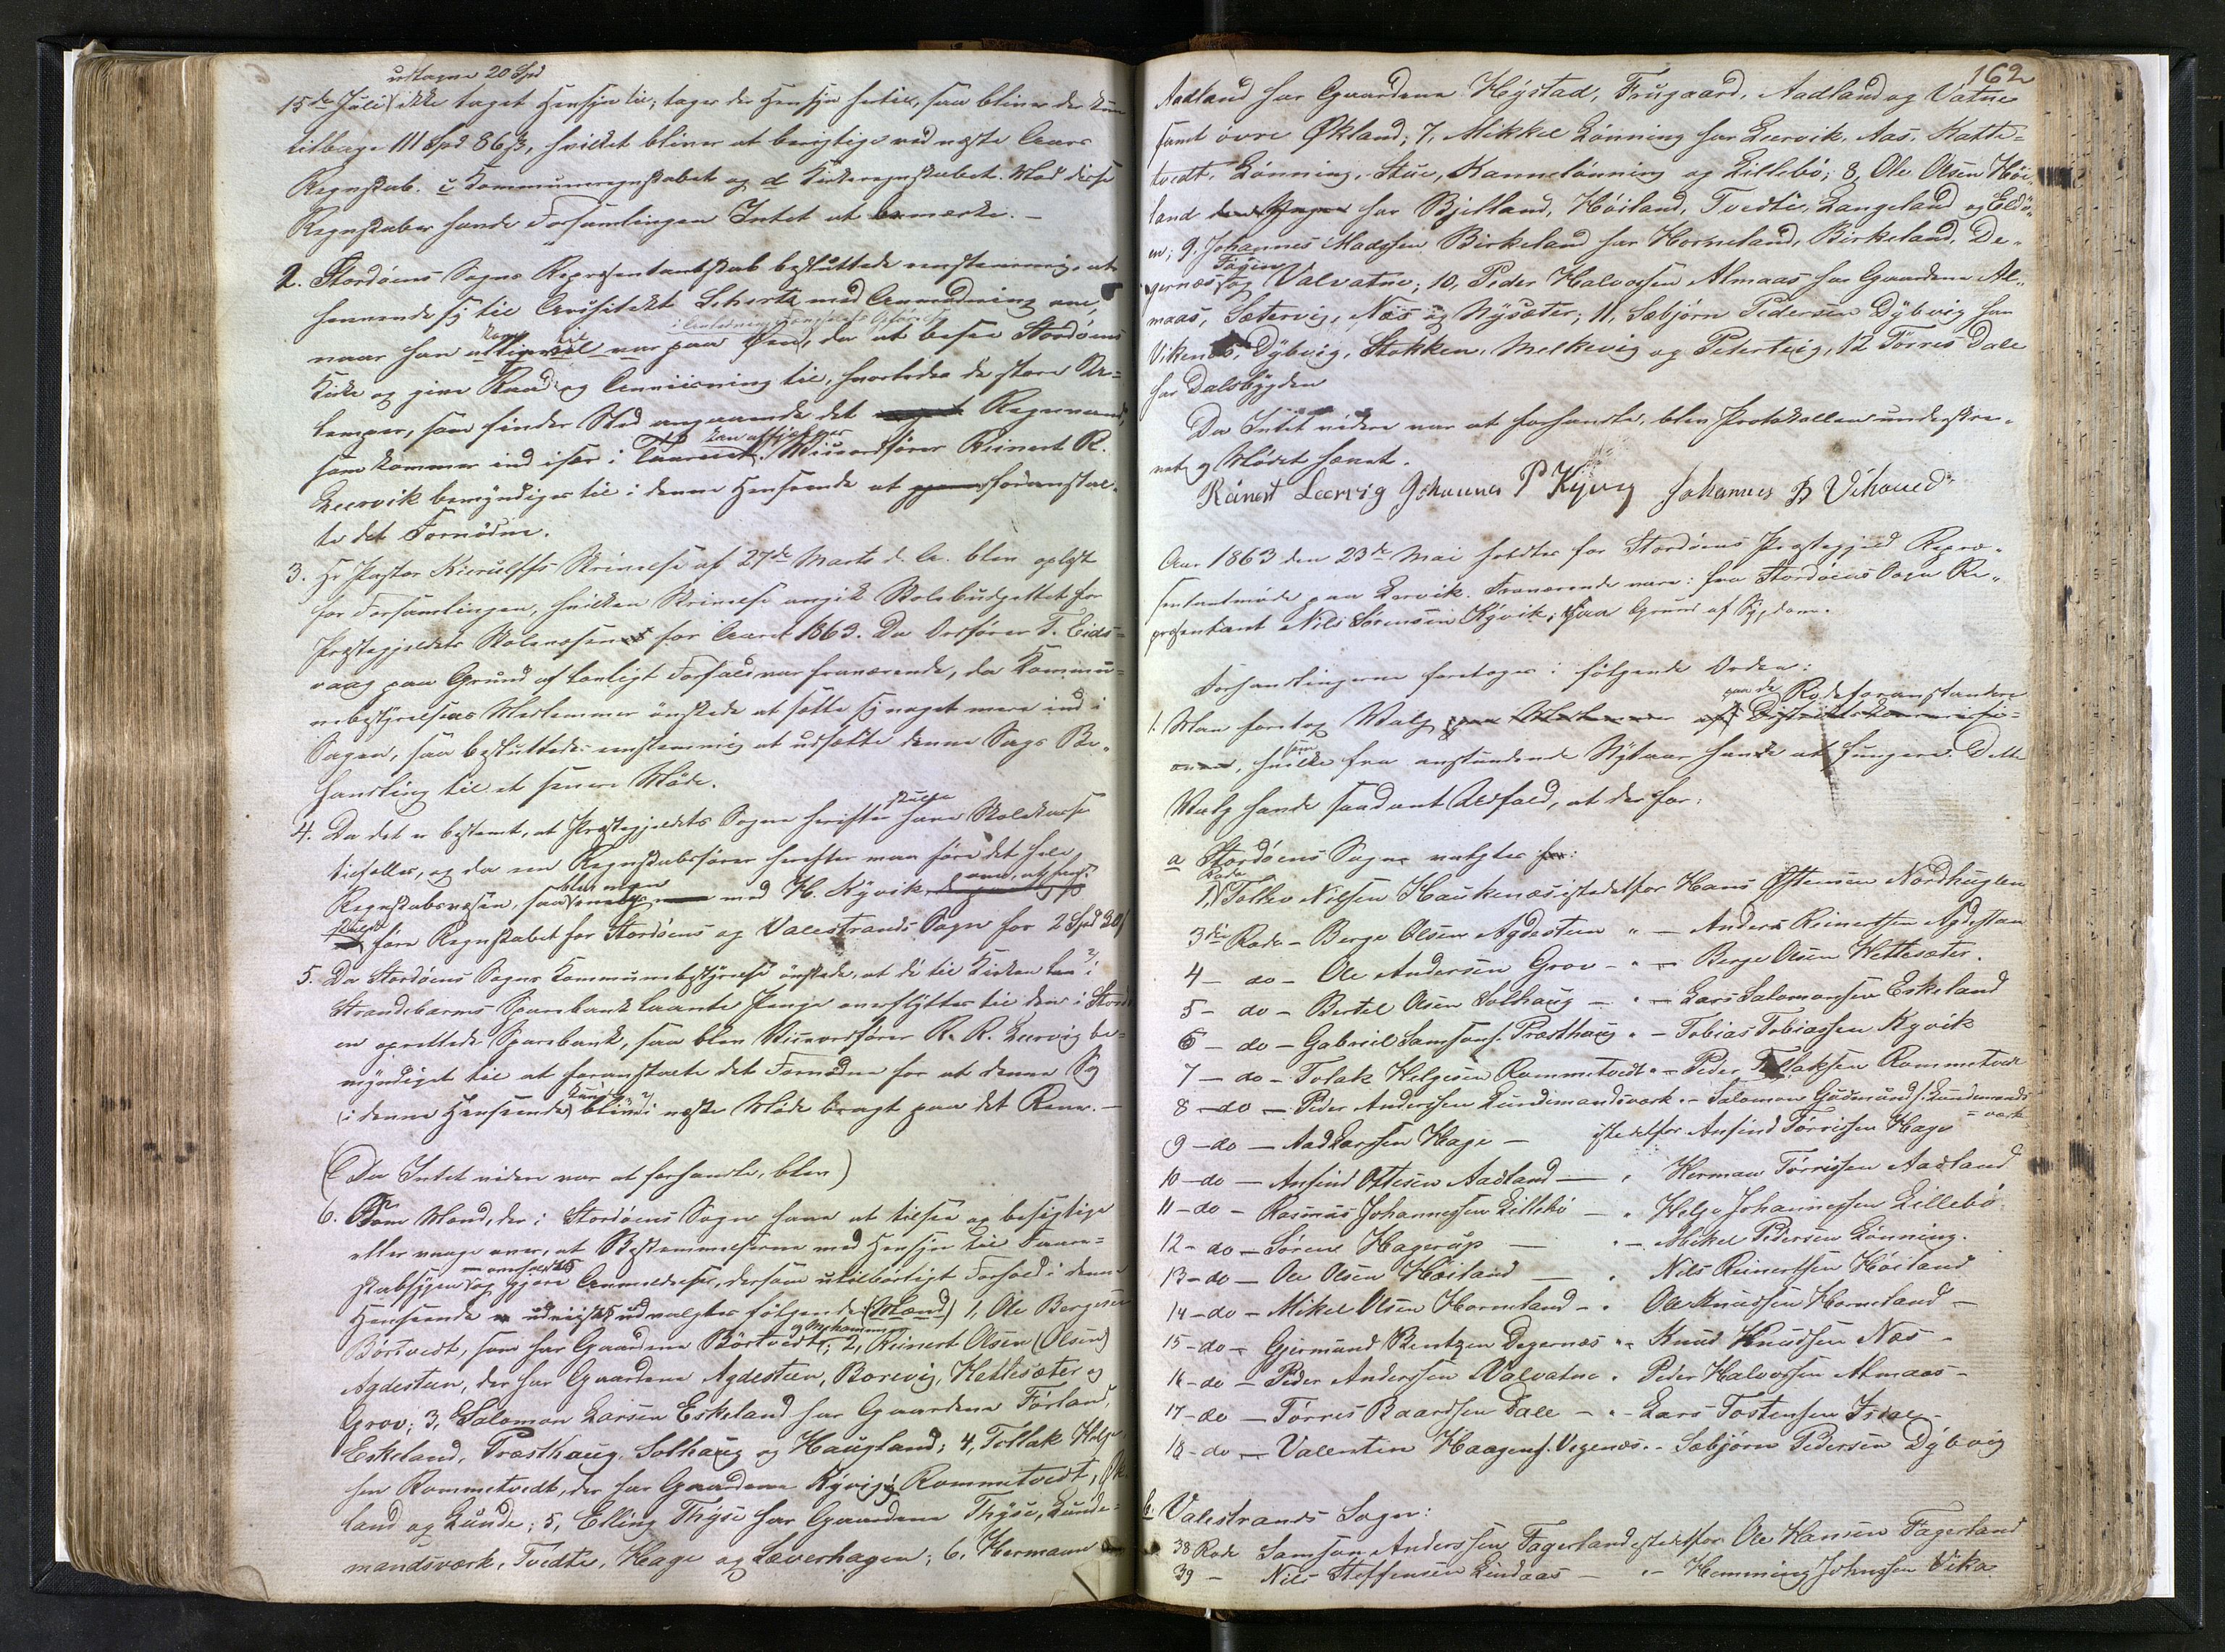 udtagne 20 Spd
15de Juli ikke taget Hensyn til; tages der Hensyn hertil, saa bliver der kun
tilbage 111 Spd 86 ß, hvilket bliver at berigtige ved næste Aars
Regnskab. c Kommuneregnskabet og d Kirkeregnskabet. Mod disse
Regnskaber havde Forsamlingen Intet at bemærke. –
2. Stordöens Sogns Repræsentantskab besluttede eenstemmig, at
henvende sig til Arkitekt Schertz med Anmodning om,
naar han kom til paa Öen, da at besee Stordöens
Kirke og give Raad og Anviisning til, hvorledes de store Ulemper, som finder Sted angaaende det Regnvand,
som kommer ind især i Taarnet kan afhjælpes. Viceordförer Reinert R.
Leervik bemyndiges til i denne Henseende at foranstal-
te det Fornödne.
3. Hr Pastor Kierulffs Skrivelse af 27de Marts d. A. blev oplæst
for Forsamlingen, hvilken Skrivelse angik Skolebudgettet for
Præstegjeldets Skolevæsen for Aaret 1863. Da Ordförer T. Eids-
vaag paa Grund af lovligt Forfald var fraværende, da Kommu-
nebestyrelsens Medlemmer önskede at sætte sig noget mere ind i
Sagen, saa besluttedes eenstemmig at udsætte denne Sags Be-
handling til et senere Möde.
4. Da det er bestemt, at Præstegjeldets Sogne herefter skulle have Skolekasse
tilfælles, og da een Regnskabsförer herefter maa före det hele
Regnskabsvæsen, saa blev man med H. Kyvik om, at han
skulde före Regnskabet for Stordöens og Valestrands Sogn for 2 Spd
5. Da Stordöens Sogns Kommunebestyrelse önskede, at de til Kirken i
Strandebarms Sparebank laante Penge overflyttes til den i Stord-
en oprettede Sparebank, saa blev Viceordförer R. R. Leervig be-
myndiget til at foranstalte det Fornödne for at denne Sag
(i denne Henseende) kunde blive i næste Möde bragt paa det Rene. –
(Da Intet videre var at forhandle, blev)
6. Som Mænd, der i Stordöens Sogn have at tilsee og besigtige
eller vaage over, at Bestemmelserne med Hensyn til Faare-
skabsygen overholdes og gjöre Anmeldelse, dersom utilbörligt Forhold i denne
Henseende udvistes udvalgtes fölgende (Mænd) 1, Ole Bergesen
Börtvedt, som har Gaardene Börtvedt og Nyhammer; 2, Reinert Olsen (Olsen)
Agdesteen, der har Gaardene Agdesteen, Borevig, Hettesæter og
Grov; 3, Salomon Larsen Eskeland har Gaardene Förland,
Eskeland, Præsthaug, Solhaug og Haugland; 4, Tollak Helge-
sen Rommetvedt, der har Gaardene Kyvig, Rommetvedt, Øk-
land og Lunde; 5, Elling Thyse har Gaardene Thyse, Lunde-
mandsværk, Tvedte, Hage og Læverhagen; 6. Hermann
162
Aadland har Gaardene Hystad, Frugaard, Aadland og Vatne
samt övre Økland; 7, Mikkel Lönning har Leervik, Aas, Katte-
tvedt, Lönning, Stue, Kannelönning og Lillebö; 8, Ole Olsen Höi-
land har Bjelland, Höiland, Tvedte, Langeland og Eldö-
en; 9. Johannes Madssen Birkeland har Horneland, Birkeland, De-
gernæs, Föyen og Valvatne; 10, Peder Halvorsen Almaas har Gaardene Al-
maas, Sætervig, Næs og Nysæter; 11, Sæbjörn Pedersen Dybvig har
Vikenæs, Dybvig, Stokken, Melkevig og Peterteig, 12 Törres Dale
har Dalsbygden
Da Intet videre var at forhandle, blev Protokollen underskre-
vet og Mödet hævet.
Reinert Leervig Johannes P Kyvig Johannes
Aar 1863 den 23de Mai holdtes for Stordöens Præstegjeld Repræ-
sentantmöde paa Lervik. Fraværende vare: fra Stordöens Sogn Re-
præsentant Nils Sörensen Kyvik, paa Grund af Sygdom.
Forhandlingerne foretoges i fölgende Orden:
1. Man foretog Valg paa de Rodeforanstandere
, hvilke fra anstundende Nytaar have at fungere. Dette
Valg havde saadant Udfald, at der for:
a Stordöens Sogn valgtes:
1, Rode Tollev Nilsen Haukenæs istedetfor Hans Østensen Nordhuglen
3die Rode – Berge Olsen Agdesteen " – Anders Reinertsen Agdesteen
4 – do – Ole Andersen Grov – " – Berge Olsen Hettesæter.
5 – do – Bertel Olsen Solhaug – " – Lars Salomonsen Eskeland
6 – do – Gabriel Samsons. Præsthaug " – Tobias Tobiassen Kyvik
7 – do – Tolak Helgesen Rommetvedt " – Peder Tollaksen Rommetvedt
8 – do – Peder Anderssen Lundemandsværk " – Salomon Gudmunds. Lundemands-
værk
9 – do – Aad Larssen Hage – istedetfor Anfind Törrissen Hage
10 – do – Anfind Ottesen Aadland – " Herman Törrissen Aadland
11 – do – Rasmus Johannessen Lillebö – " Helge Johannessen Lillebö
12 – do – Sören Hagerup – " – Mikel Pedersen Lönning.
13 – do – Ole Olsen Höiland – " Nils Reinertsen Höiland
14 – do – Mikel Olsen Horneland – " Ole Knudsen Horneland –
15 – do – Gjermund Bentzen Degernæs " – Knud Knudsen Næs –
16 – do – Peder Anderssen Valvatne " Peder Halvorsen Almaas –
17 – do – Törres Baardsen Dale – " – Lars Tostensen Isdal –
18 – do – Valentin Haagens. Vegenæs " – Sæbjörn Pedersen Dybvig
b. Valestrands Sogn:
38 Rode Samson Anderssen Fagerland istedetfor Ole Hansen Fagerland
39 – Nils Steffensen Lindaas – " – Hemming Johnssen Vika.